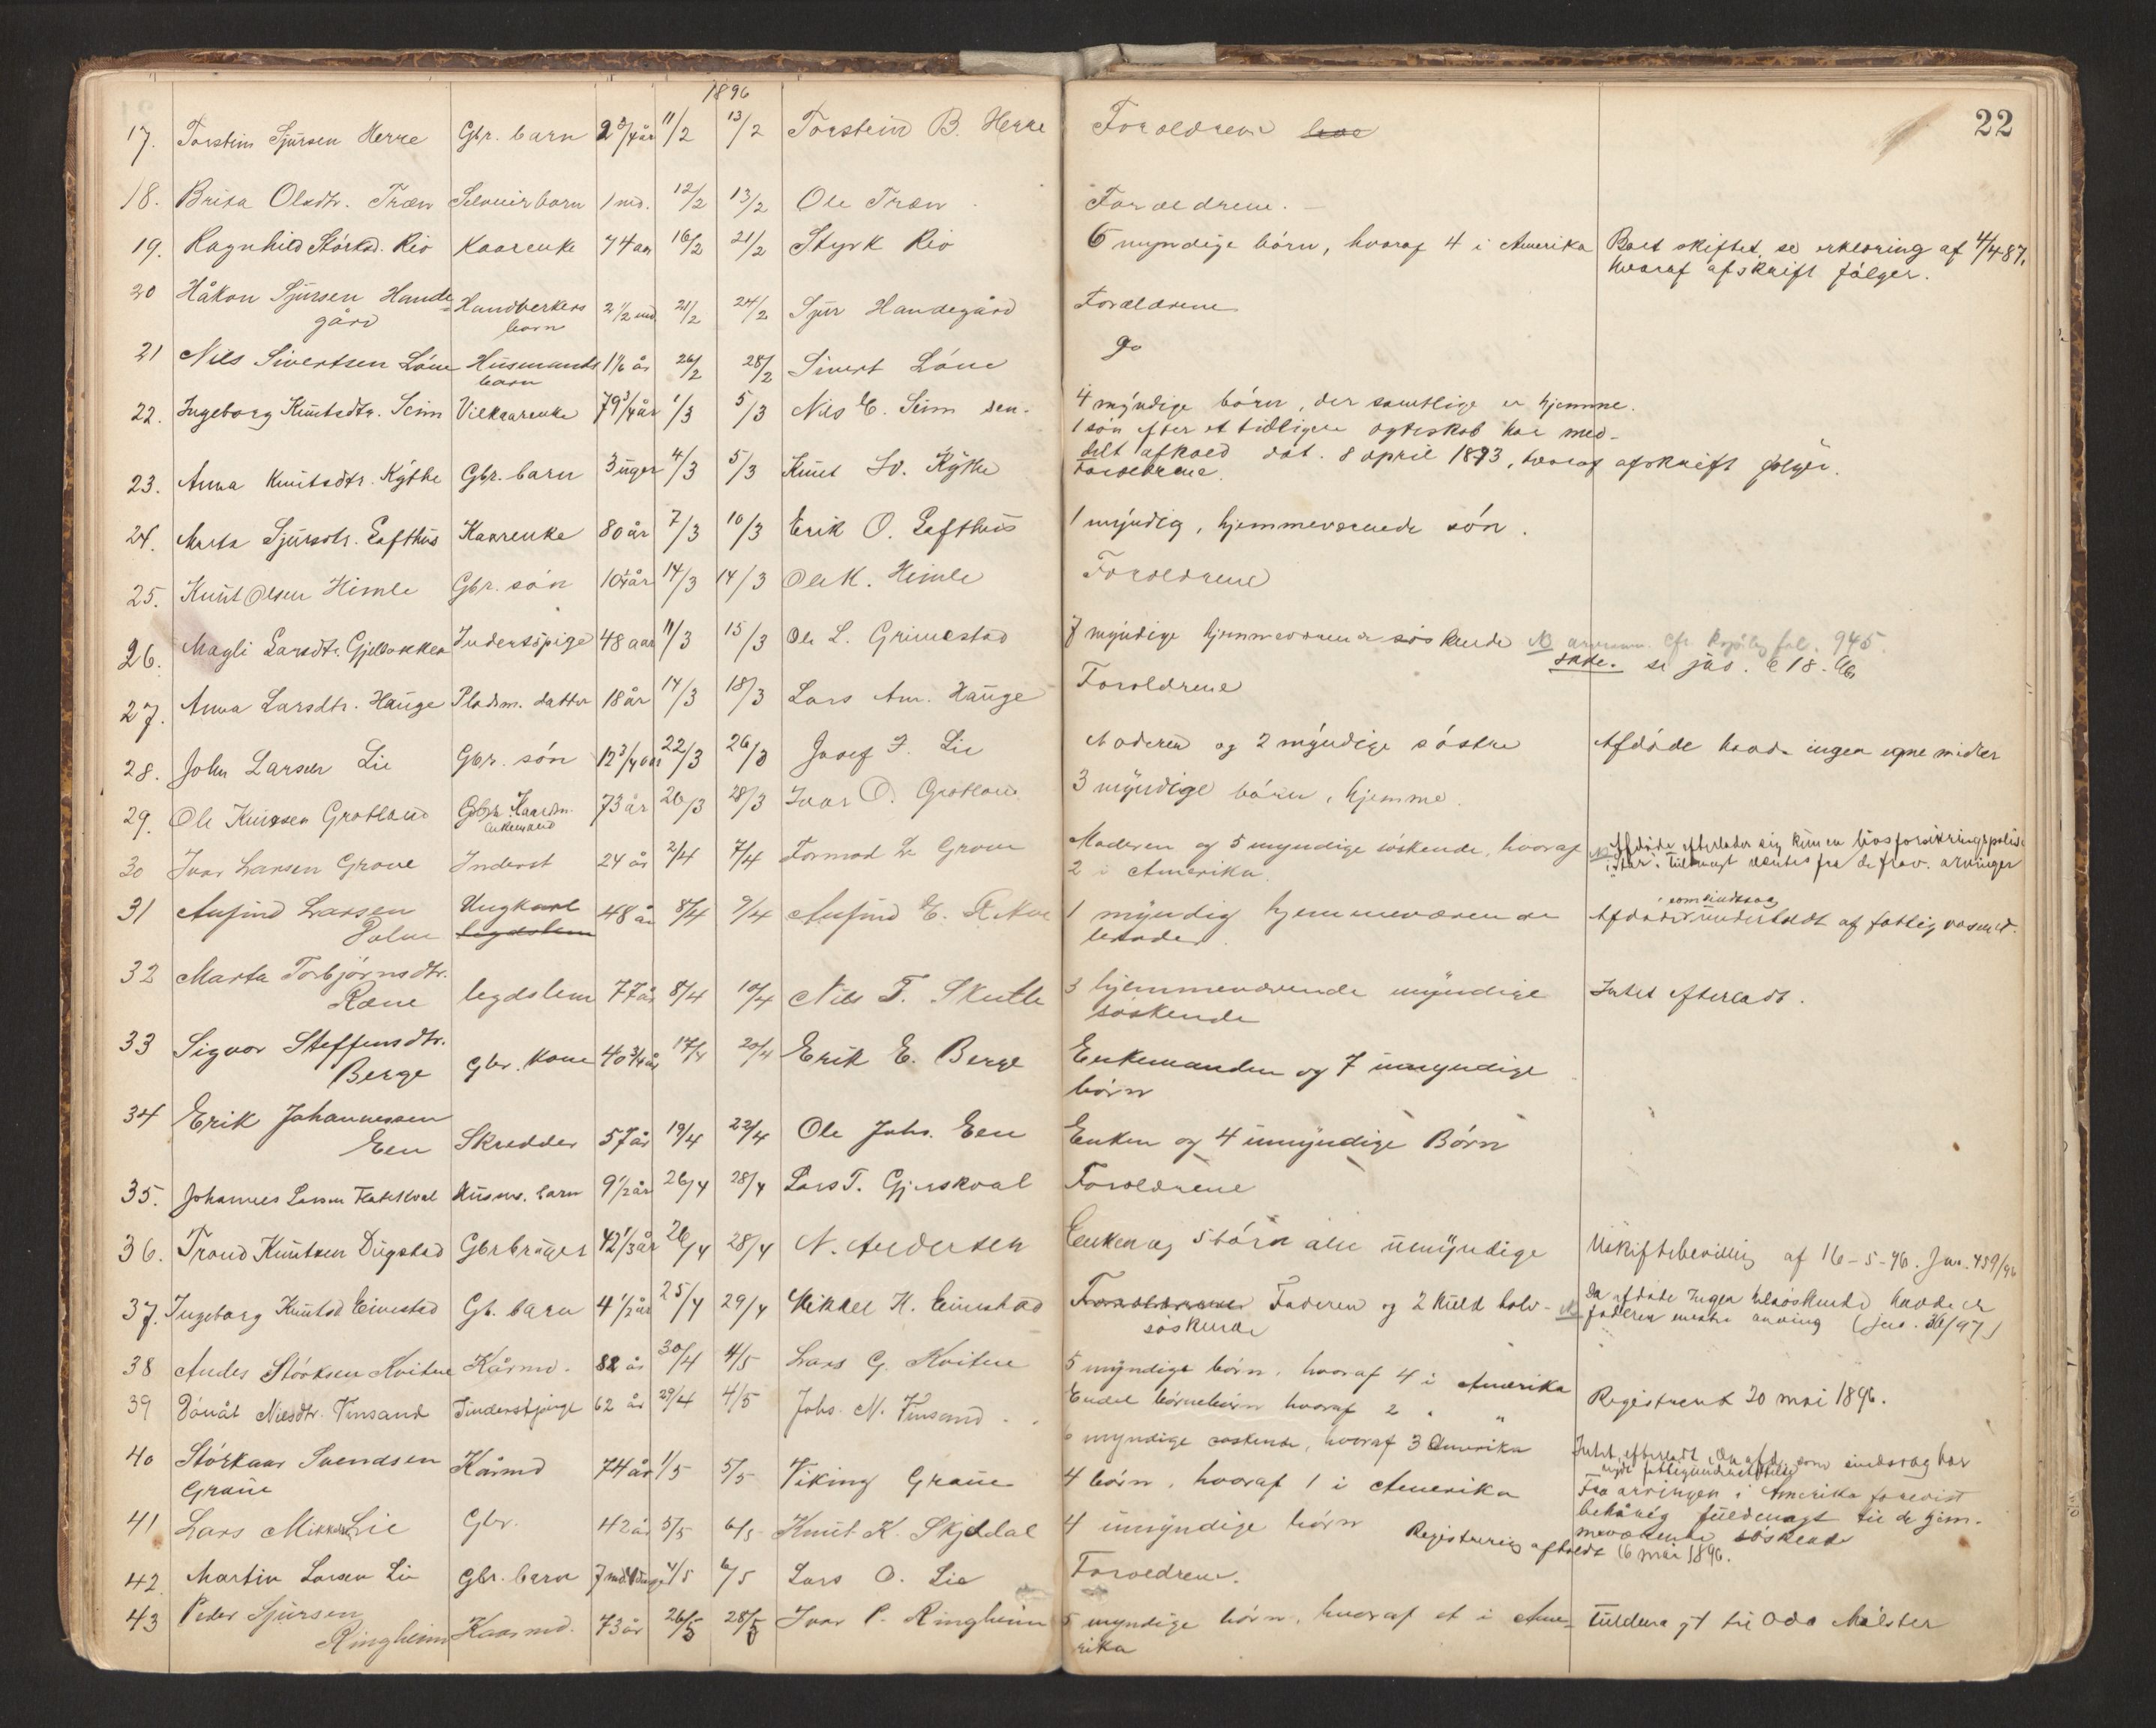 1896
22
17. Torstein Sjursen Herre Gbr. barn 2 3/4 år 11/2 13/2 Torstein B. Herre Forældrene
18. Brita Olsdtr. Træn 1 md. 12/2 13/2 Ole Træn Forældrene.
19. Ragnhild Störksd. Rio Kaarenke 74 aar 16/2 21/2 Styrk Rio 6 myndige börn, hvoraf 4 i Amerika Boet skiftet, se erklæring af 4/4 87,
hvoraf afskrift fölger.
20 Håkon Sjursen Hande- Handverkers 2 1/2 md. 21/2 24/2 Sjur Handegård Forældrene
gård barn
21 Nils Sivertsen Löne Husmands 1 1/6 år 26/2 28/2 Sivert Löne Do
barn
22. Ingeborg Knutsdtr. Seim Vilkaarenke 79 3/4 år 1/3 5/3 Nils E. Seim sen. 4 myndige börn, der samtlige er hjemme.
1 sön efter et tidligere ægteskab har med-
delt afkald dat. 8 april 1893, hvoraf afskrift fölger.
23. Anna Knutsdtr. Kythe Gbr. barn 3 uger 4/3 5/3 Knut Kythe Forældrene.
24. Marta Sjursdtr. Lofthus Kaarenke 80 år 7/3 10/3 Erik O. Lofthus 1 myndig, hjemmeværende sön.
25. Knut Olsen Himle Gbr. sön 14/3 14/3 Ole K. Himle Forældrene
26. Magli Larsdtr. Gjelsakker Inderstpige 48 aar 11/3 15/3 Ole L. Grimestad 7 myndige hjemmeværende söskende NB fol. 945.
se jus. 18.
27. Anna Larsdtr. Hauge Pladsm. datter 18 år 14/3 18/3 Lars And. Hauge Forældrene
28. John Larsen Lie Gbr. sön 12 3/4 aar 22/3 26/3 Josef J. Lie Moderen og 2 myndige söstre Afdöde havde ingen egne midler
29. Ole Knutsen Grotland enkemand 73 år 26/3 28/3 Ivar O. Grotland 3 myndige börn, hjemme.
30 Ivar Larsen Grove Inderst 24 år 2/4 7/4 Tormod L. Grove Moderen og 5 myndige söskende, hvoraf Afdöde efterlader sig kun en livsforsikringspolise
2 i Amerika. i "Star". Fuldmagt ventes fra de frav. arvinger
31 Anfind Larsen Ungkarl 48 år 8/4 9/4 Anfind E. 1 myndig hjemmeværende Afdöde som sindssvag understödt af fattigvæsenet.
legdslem
32 Marta Torbjörnsdtr.
Rene legdslem 77 år 8/4 10/4 Nils T. Skutle 3 hjemmeværende myndige Intet efterladt.
söskende
33 Sigvor Steffensdtr.
Berge Gbr. kone 40 3/4 år 17/4 20/4 Erik E. Berge Enkemanden og 7 umyndige
börn
34 Erik Johannessen
Een Skrædder 57 år 19/4 22/4 Ole Johs. Een Enken og 4 umyndige Börn
35. Johannes Larsen Husm. barn 9 1/2 år 26/4 28/4 Lars T. Gjerskval Forældrene
36. Trond Knutsen Dugstad Gbrbruger 42 1/3 år 26/4 28/4 N. Andersen Enken og 5 börn alle umyndige Uskiftebevilling af 16-5-96. Jur. 459/96
37. Ingeborg Knutsd Eimstad Gb. barn 4 1/2 år 25/4 29/4 Mikkel K. Eimstad Forældrene Faderen og 2 kuld halv- NB Da afdöde ingen helsöskende havde er
söskende faderen eneste arving (jur. 36/97)
38 Andes Störksen Kvitne Kårmd. 82 år 30/4 4/5 Lars G. Kvitne 5 myndige börn, hvoraf 4 i Amerika
Endel börnebörn hvoraf 2 " " Registreret 20 mai 1896.
39 Nilsdtr. Vinsand Inderstpige 62 år 29/4 4/5 Johs. N. Vinsand 6 myndige söskende, hvoraf 3 Amerika Intet efterladt, da afd. som sindssvag har
nydt fattigunderstöttelse
40 Störkaar Svendsen Kårmd 74 år 1/5 5/5 Viking Graue 4 börn, hvoraf 1 i Amerika Fra arvingen i Amerika forevist
Graue behörig fuldmagt til de hjem-
meværende söskende
41 Lars Mikkelsen Lie Gbr. 42 år 5/5 6/5 Knut K. Skjeldal 4 umyndige börn Registrering afholdt 16 mai 1896.
42. Martin Larsen Lie Gbr. barn 7 md. 4/5 6/5 Lars O. Lie Forældrene.
43 Peder Sjursen
Ringheim Kaarmd. 73 år 26/5 28/5 Ivar P. Ringheim 5 myndige börn, hvoraf et i Ame- Fuldmagt til Odd Mölster
rika